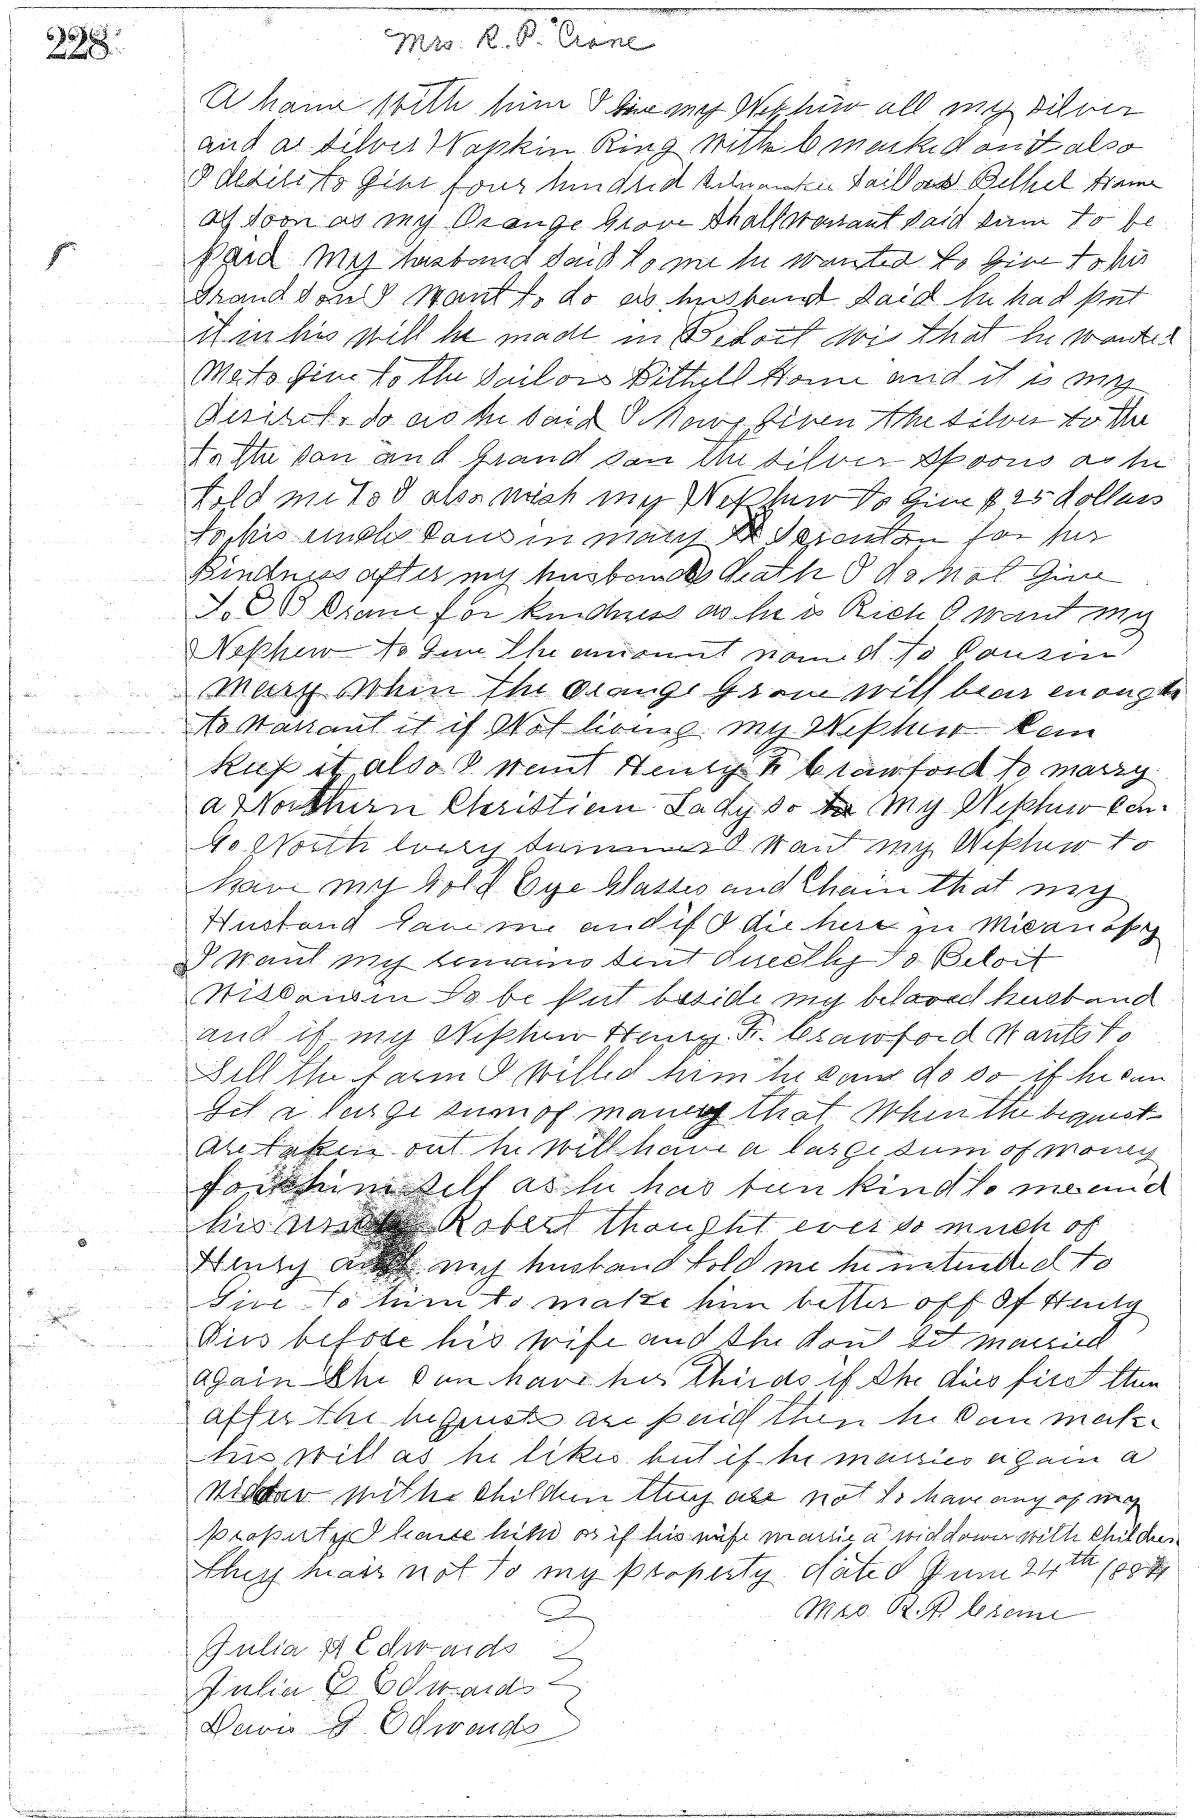 228
Mrs. R. P. Crane
A home with him I give my Nephew all my silver
and a silver Napkin Ring with C marked on it also
I desire to give four hundred Milwaukee Sailors Bethel Home
as soon as my Orange Grove shall warrant said sum to be
paid My husband said to me he wanted to give to his
Grand son I want to do as husband said he had put
it in his will he made in Beloit Wis that he wanted
me to give to the Sailors Bethell Home and it is my
desire to do as he said I have given the silver to the
to the son and Grand son the silver spoons as he
told me to I also wish my Nephew to give $25 dollars
to his uncles Cousin mary Scranton for her
Kindness after my husbands death I do not give
To Crane for kindness as he is Rich I want my
Nephew to give the amount named to Cousin
Mary when the orange Grove will bear enough
to warrant it if Not living my Nephew can
keep it also I want Henry F Crawford to marry
a Northern Christian Lady so My Nephew can
Go North every summer I want my Nephew to
have my Gold Eye Glasses and Chain that my
Husband Gave me and if I die here in Micanopy
I want my remains sent directly to Beloit
Wisconsin to be put beside my beloved husband
and if my Nephew Henry F. Crawford wants to
sell the farm I willed him he can do so if he can
get a large sum of money that when the bequest
are taken out he will have a large sum of money
for himself as he has been kind to me and
his uncle Robert thought ever so much of
Henry and my husband told me he intended to
Give to him to make him better off If Henry
dies before his wife and she dont get married
again she can have her thirds if she dies first then
after the bequests are paid then he can make
his will as he likes but if he marries again a
widow with children they are not to have any of my
property I leave him or if his wife marrie a widdower with children
they hair not to my property dated June 24th 188
Mrs. R. P. Crane
Julia A Edwards
Julia E Edwards
Davis G Edwards